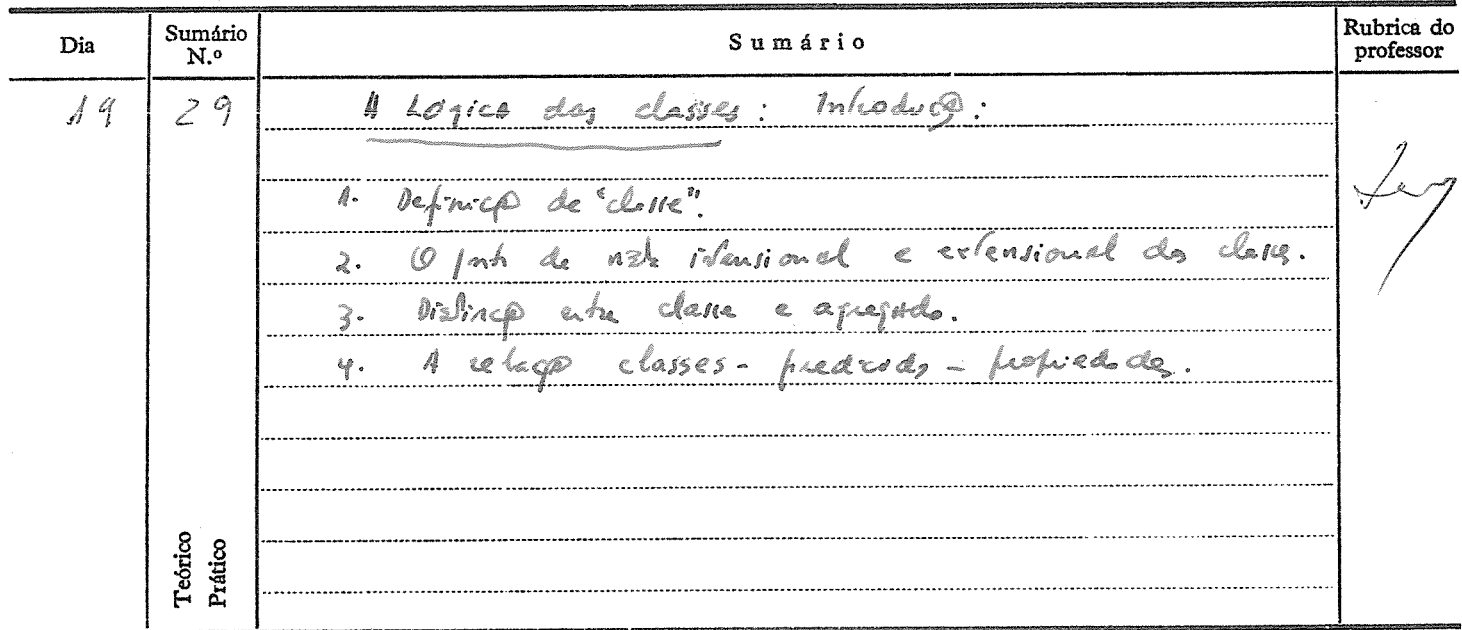 Dia Sumário N.º Sumário Rubrica do professor
19 29 A Lógica das classes: Introduç@:
1. Definiç@ de "classe".
2. O ponto de vista intensional e extensional das classes.
3. Distinç@ entre classe e agregado.
4. A relaç@ classes - predicados - propriedades.
Teórico
Prático